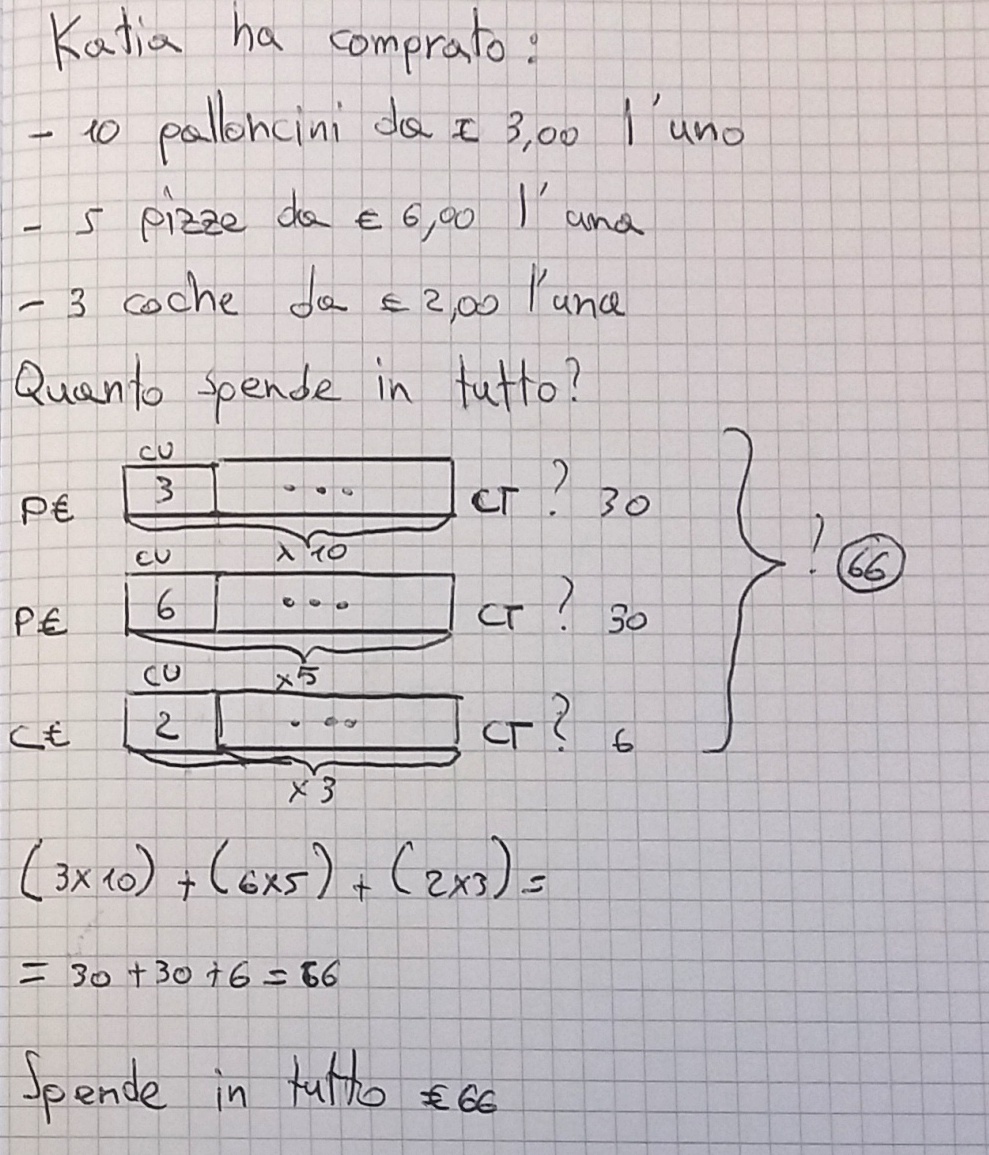 Katia ha comprato:
- 10 palloncini da € 3,00 l'uno
- 5 pizze da € 6,00 l'una
- 3 coche da € 2,00 l'una
Quanto spende in tutto?
CU
P€ 3 ... CT ? 30
x 10
CU
P€ 6 ... CT ? 30
x5
CU
C€ 2 ... CT ? 6
x 3
? 66
(3x10) + (6x5) + (2x3) =
= 30 + 30 + 6 = 66
Spende in tutto € 66